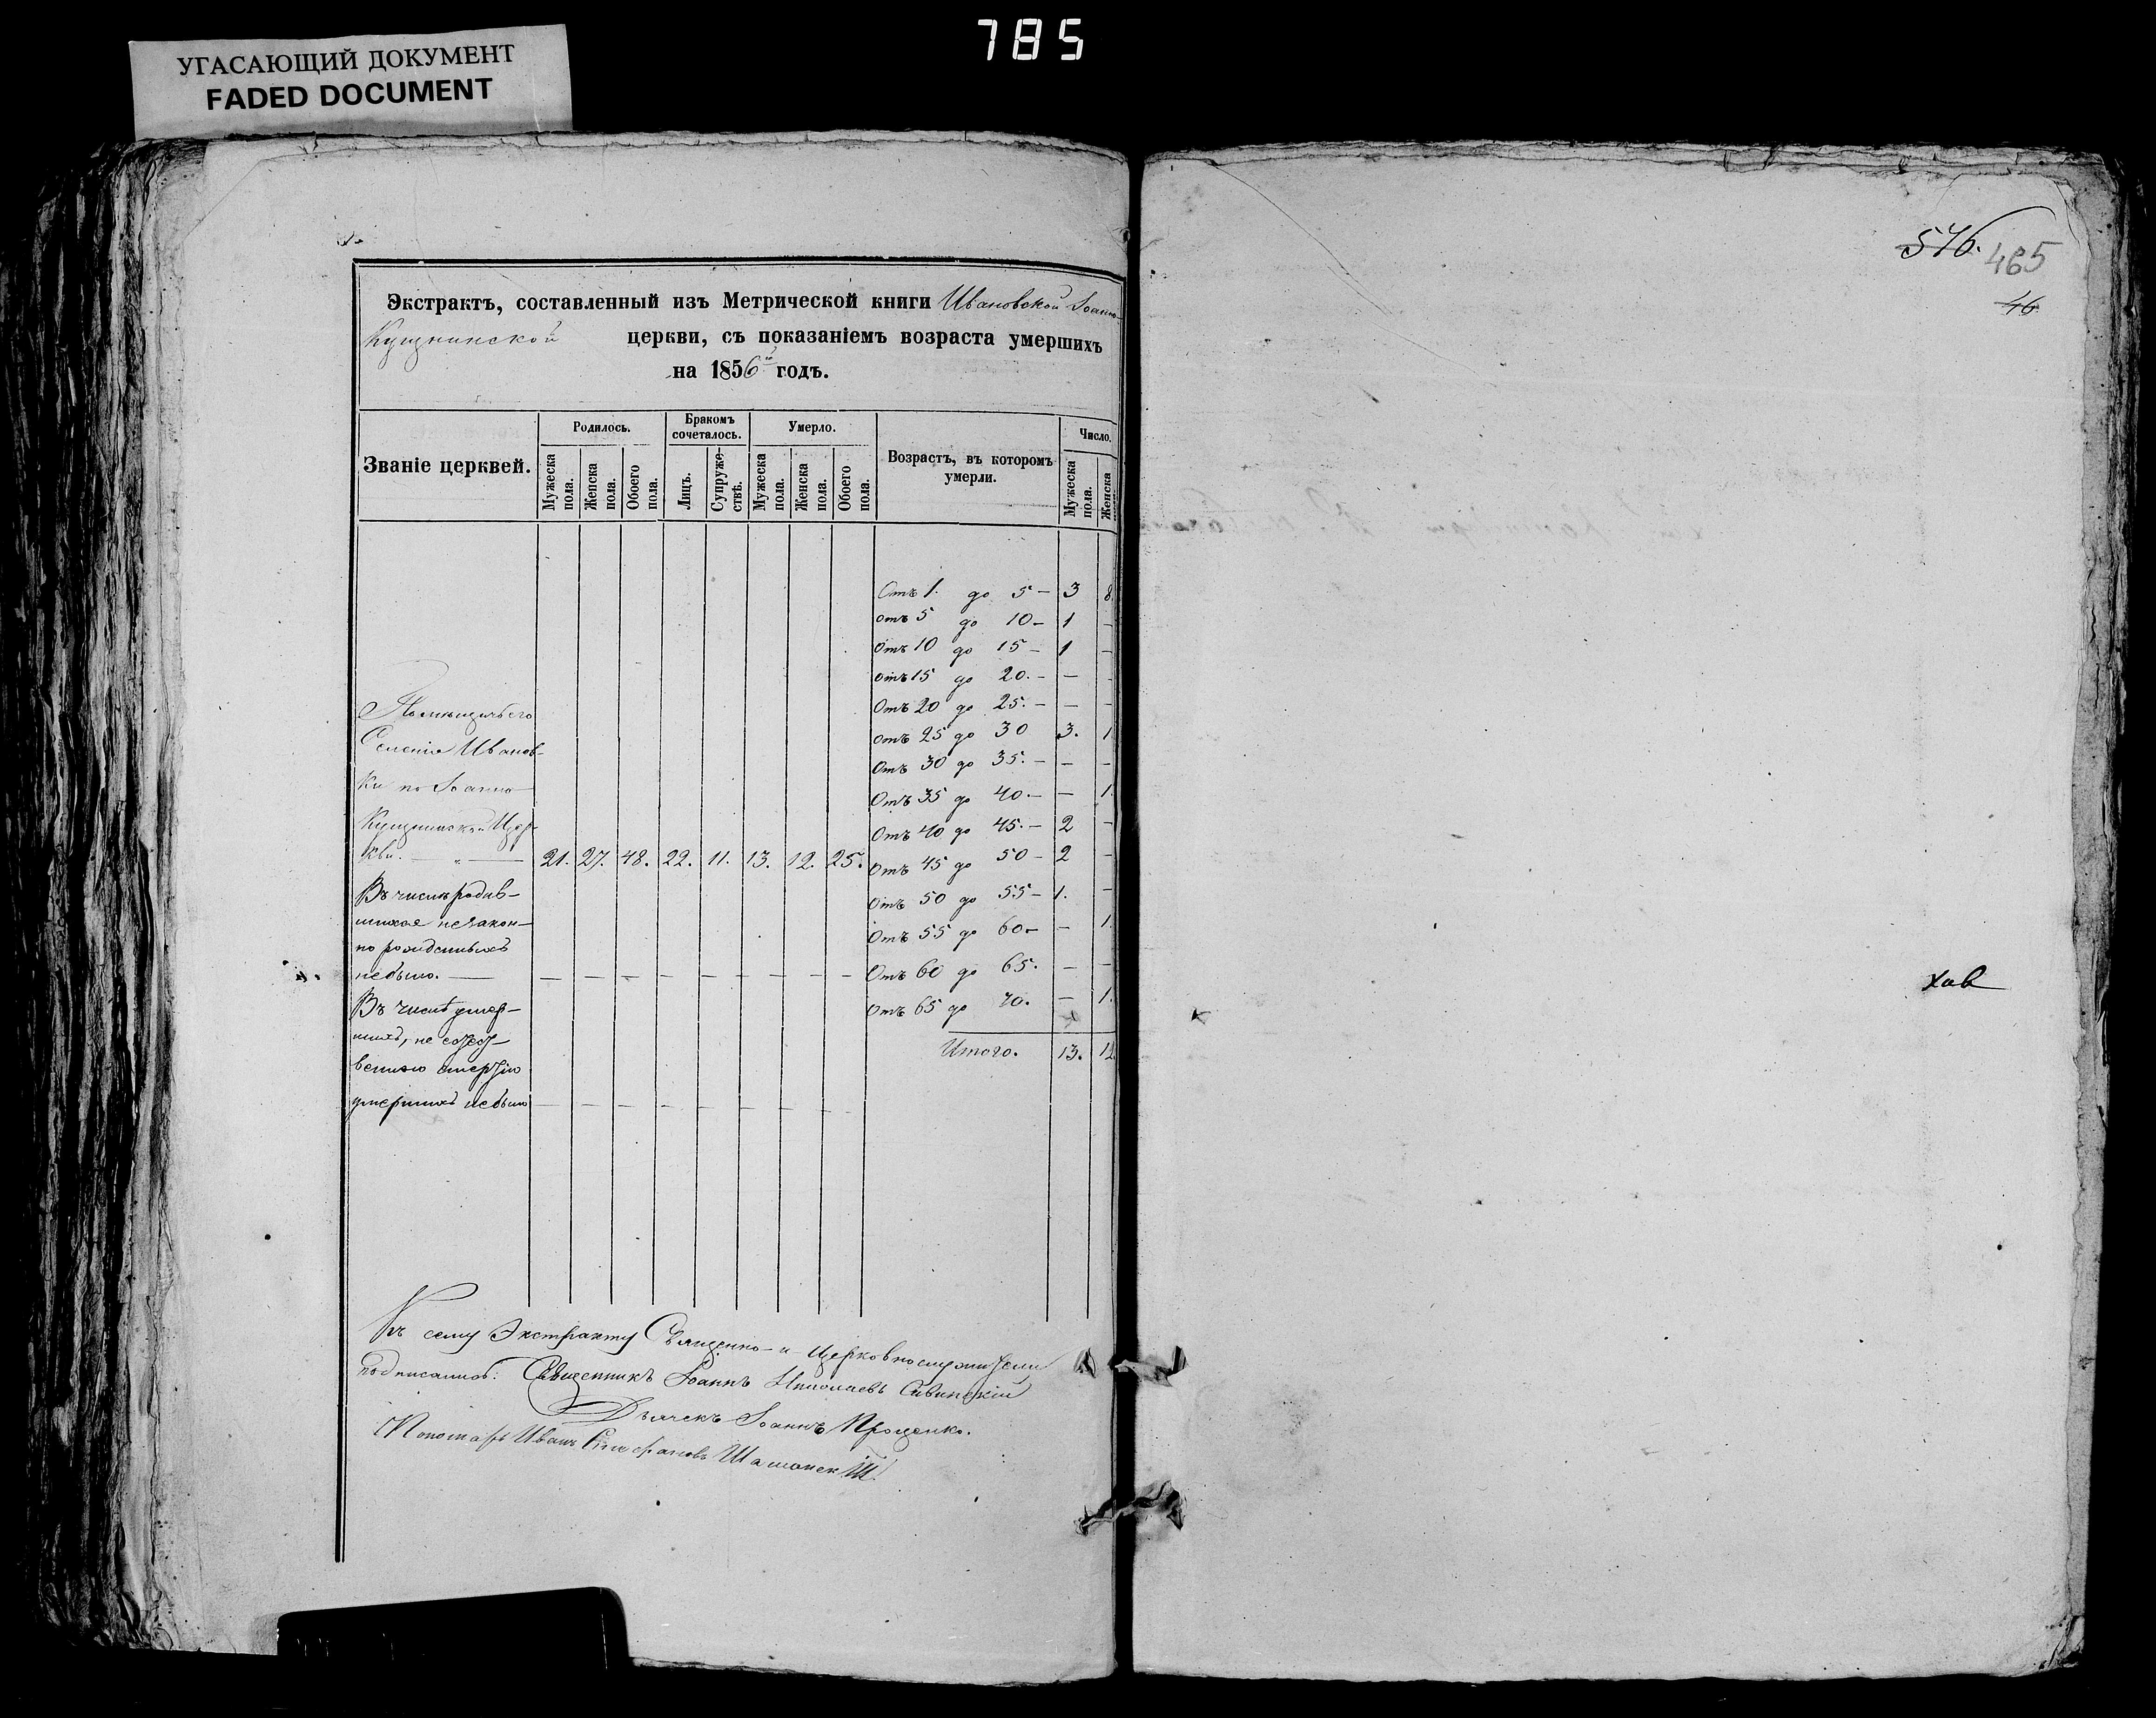 785
УГАСАЮЩИЙ ДОКУМЕНТ
FADED DOCUMENT
Экстрактъ, составленный изъ Метрической книги Ивановской Іоанно-
церкви, съ показаніемъ возраста умершихъ
на 1856й годъ.
Званіе церквей.
Родилось.
Бракомъ сочеталось.
Умерло.
Возрастъ, въ котором умерли.
Число.
Мужеска пола.
Женска пола.
Обоего пола.
Лицъ.
Супружествъ.
Мужеска пола.
Женска пола.
Обоего пола.
Мужеска пола.
Женска
Отъ 1. до 5 — 3 8.
отъ 5 до 10 — 1 —
Отъ 10 до 15 — 1 —
отъ 15 до 20. — — -
Отъ 20 до 25. — — —
отъ 25 до 30 3. 1
Отъ 30 до 35. — — —
Отъ 35 до 40 — — 1.
Отъ 40 до 45. — 2 —
Отъ 45 до 50 — 2 —
Отъ 50 до 55 — 1. —
Отъ 55 до 60 — — 1.
Отъ 60 до 65. — —
Отъ 65 до 70. — 1.
Итого. 13. 12.
Помѣщичьего
Селенія Иванов-
ки по Іоанно-
Цер-
кви. — " — 21. 27. 48. 22. 11. 13. 12. 25.
Въ числѣ родив-
шихся незакон-
но рожденныхъ
небыло. — — — — — — — — —
Въ числѣ умер-
шихъ, не естест-
венною смертію
умершихъ небыло — — — — — — — —
Къ сему Экстракту Священно- и Церковнослужители
подписались: Священникъ Іоаннъ Николаевъ Савинскій
Дьячекъ Іоаннъ Проценко.
Пономарь Иванъ Стефановъ
546.
465
46